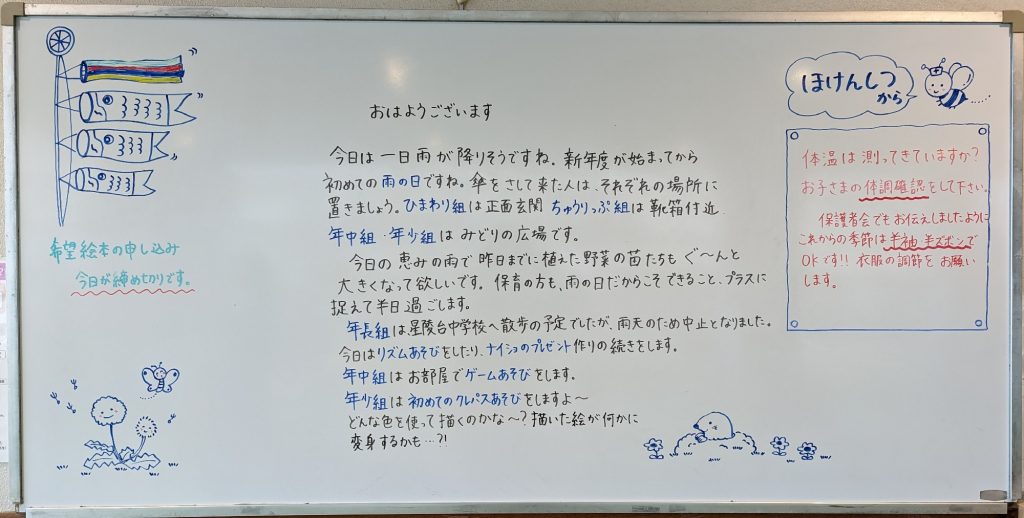 おはようございます
今日は一日雨が降りそうですね。新年度が始まってから
初めての雨の日ですね。傘をさして来た人は、それぞれの場所に
置きましょう。ひまわり組は正面玄関 ちゅうりっぷ組は靴箱付近
年中組・年少組は みどりの広場です。
今日の恵みの雨で昨日までに植えた野菜の苗たちも ぐ〜んと
大きくなって欲しいです。保育の方も、雨の日だからこそできること、プラスに
捉えて半日過ごします。
年長組は、星陵台中学校へ散歩の予定でしたが、雨天のため中止となりました。
今日はリズムあそびをしたり、ナイショのプレゼント作りの続きをします。
年中組はお部屋でゲームあそびをします。
年少組は初めてのクレパスあそびをしますよ〜
どんな色を使って描くのかな〜?描いた絵が何かに
変身するかも…?!
希望絵本の申し込み
今日が締めきりです。
ほけんしつ
から
体温は測ってきていますか?
お子さまの体調確認をして下さい。
保護者会でもお伝えしましたように
これからの季節は半袖半ズボンで
OKです!!衣服の調節をお願い
します。